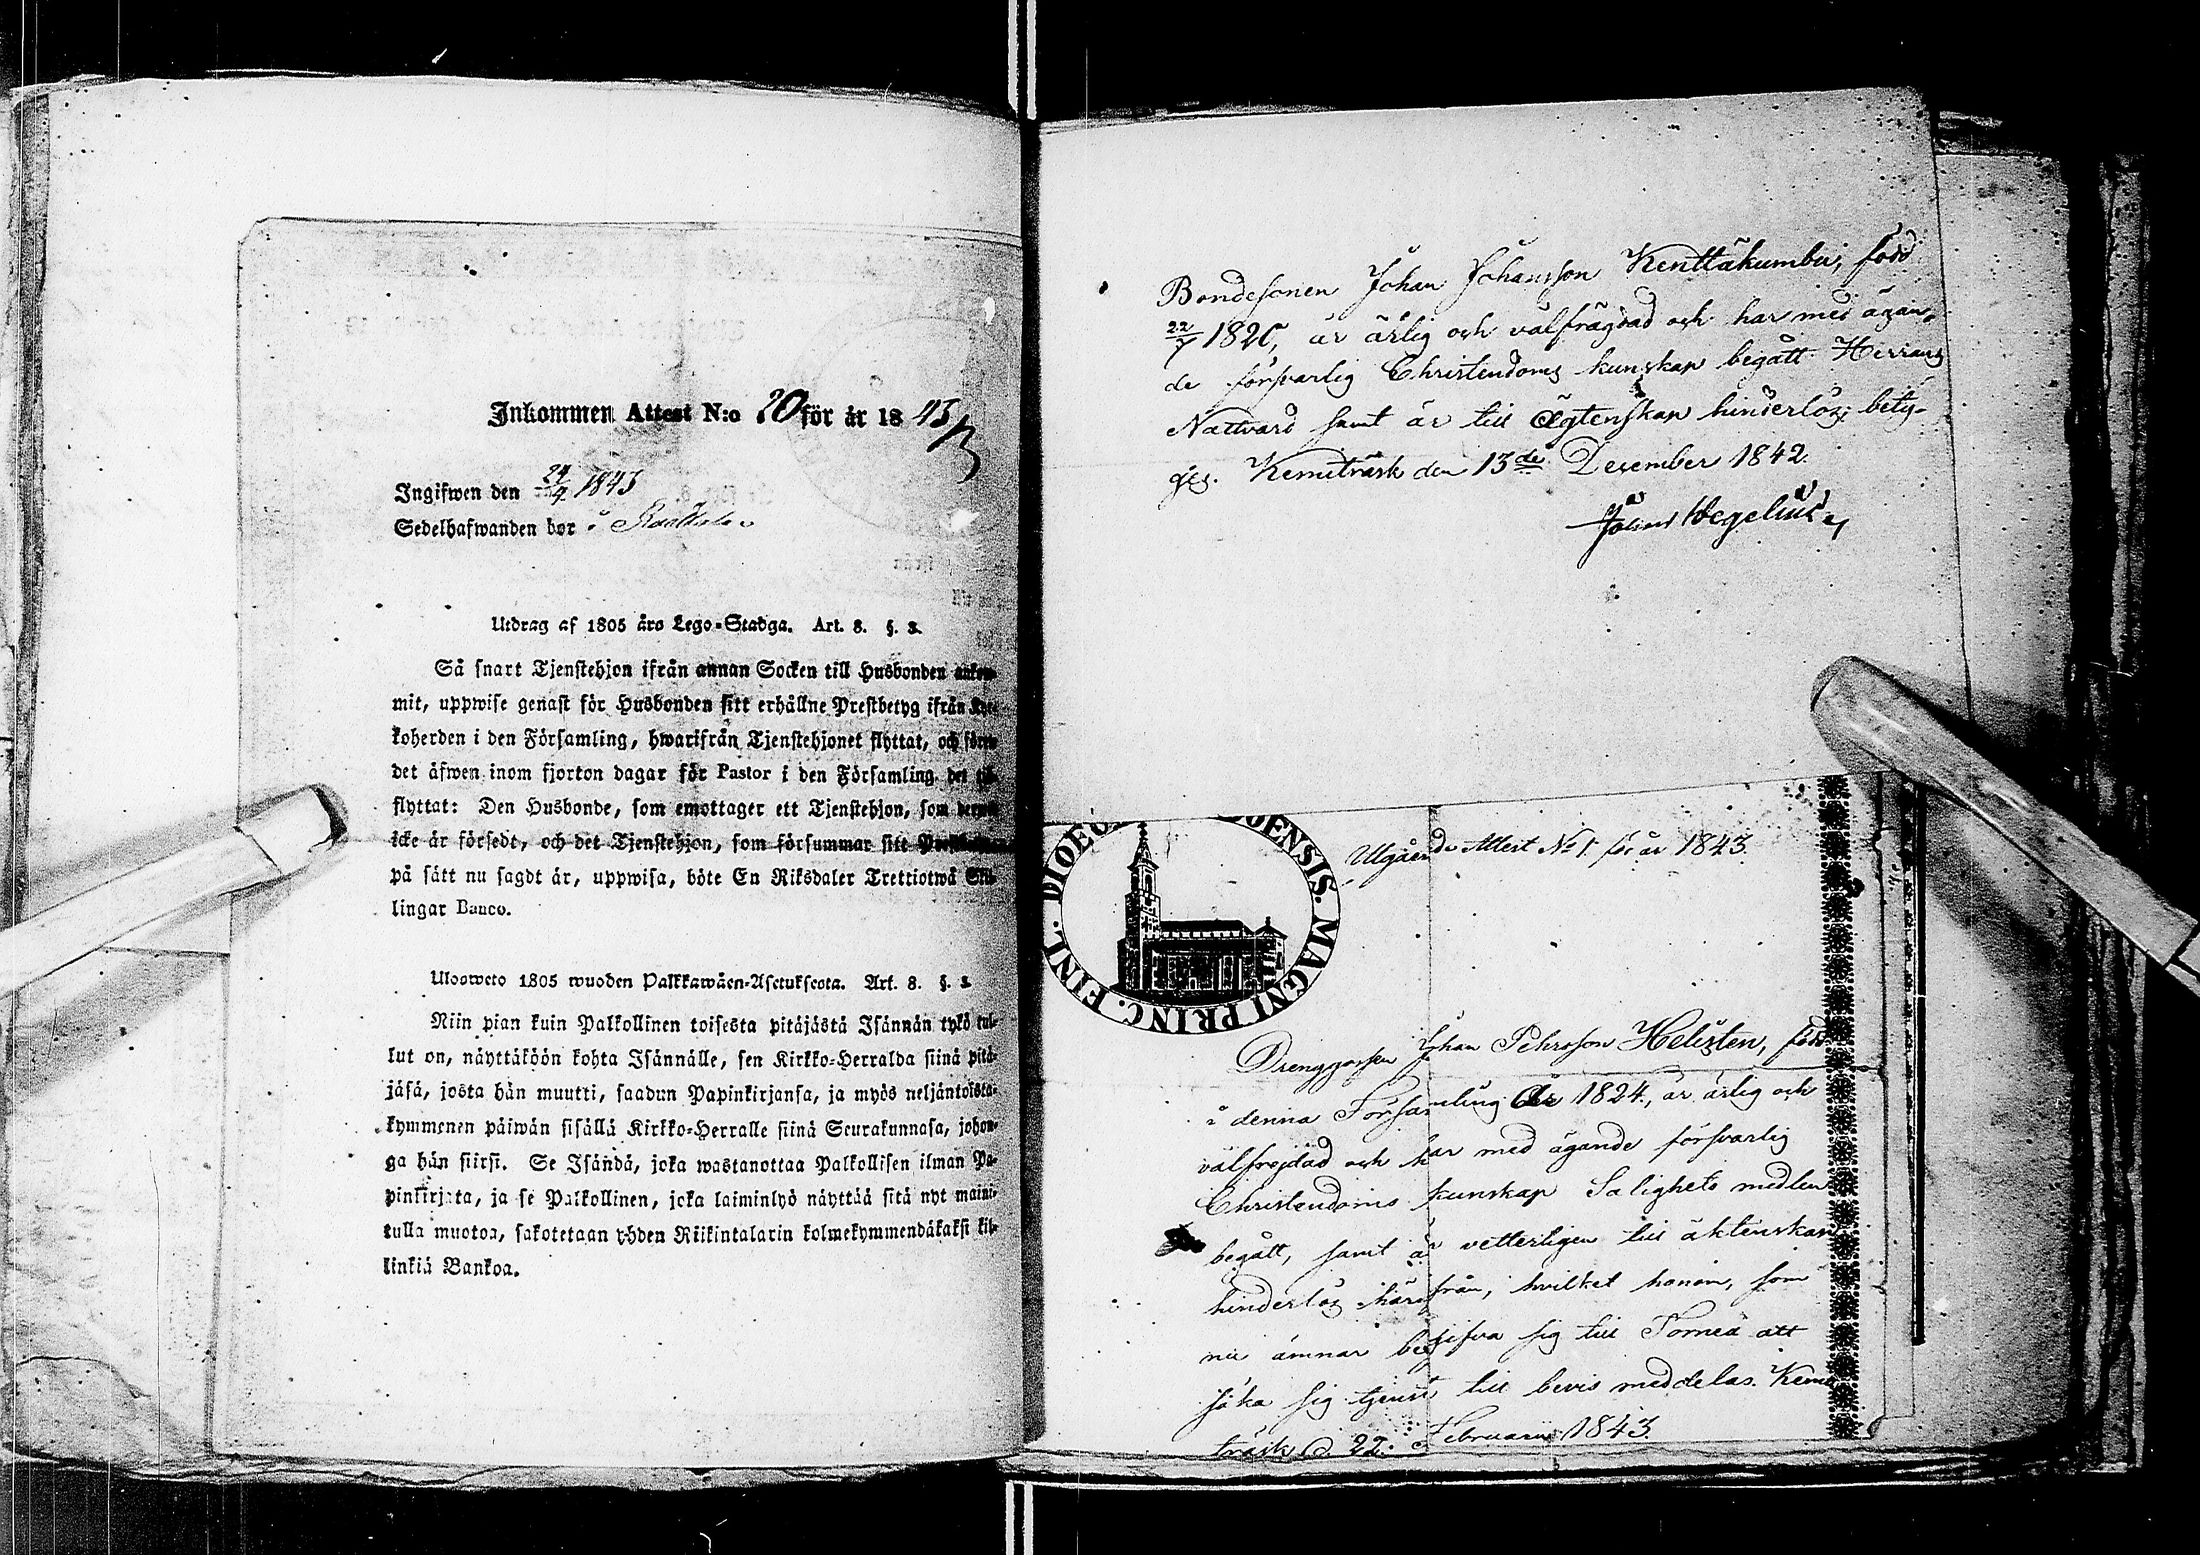 Inkommen Attest N:o 20 för år 1843
Ingifwen den 24/9 1843
Sedelhafwanden bor i
Utdrag af 1805 års Lego-Stadga. Art. 8. §. 3.
Så snart Tjenstehjon ifrån annan Socken till Husbonden ankom-
mit, uppwise genast för Husbonden sitt erhållne Prestbetyg ifrån Kyr-
koherden i den Församling, hwarifrån Tjenstehjonet flyttat, och
det äfwen inom fjorton dagar för Pastor i den Församling det
flyttat: Den Husbonde, som emottager ett Tjenstehjon, som
icke är försedt, och det Tjenstehjon, som försummar sitt
på sätt nu sagdt är, uppwisa, böte En Riksdaler Trettiotwå Skil-
lingar Banco.
Ulosweto 1805 wuoden Palkkawäen-Asetuksesta. Art. 8. §. 3.
Niin pian kuin Palkollinen toisesta pitäjästä Isännän tykö tul-
lut on, näyttäköön kohta Isännälle, sen Kirkko-Herralda siinä pitä-
jäsä, josta hän muutti, saadun Papinkirjansa, ja myös neljäntoista-
kymmenen päiwän sisällä Kirkko-Herralle siinä Seurakunnasa, johon-
ga hän siirsi. Se Isändä, joka wastanottaa Palkollisen ilman Pa-
pinkirjata, ja se Palkollinen, joka laiminlyö näyttää sitä nyt maini-
tulla muotoa, sakotetaan yhden Riikintalarin kolmekymmendäkaksi kil-
linkiä Bankoa.
Bondesonen Johan Johansson Kenttäkumbu, född
22/7 1820, är ärlig och välfrägdad och har med ägan-
de försvarlig Christendoms kunskap begått Herrans
Nattvard samt är till Ägtenskap hinderlös; bety-
ges. Kemiträsk den 13de December 1842.
Hegelius
DIOEC. OENSIS. MAGNI PRINC. FINL.
Utgående Attest No 1. för år 1843.
Drenggossen Johan Pehrsson Helisten, född
i denna Församling år 1824, är ärlig och
välfrejdad och har med ägande försvarlig
Christendoms kunskap Salighets medlen
begått, samt är vetterligen till äktenskap
hinderlös härifrån, hvilket honom, som
nu ämnar begifva sig till Torneå att
söka sig tjenst, till bevis meddelas. Kemi
träsk d. 22. Februarii 1843.